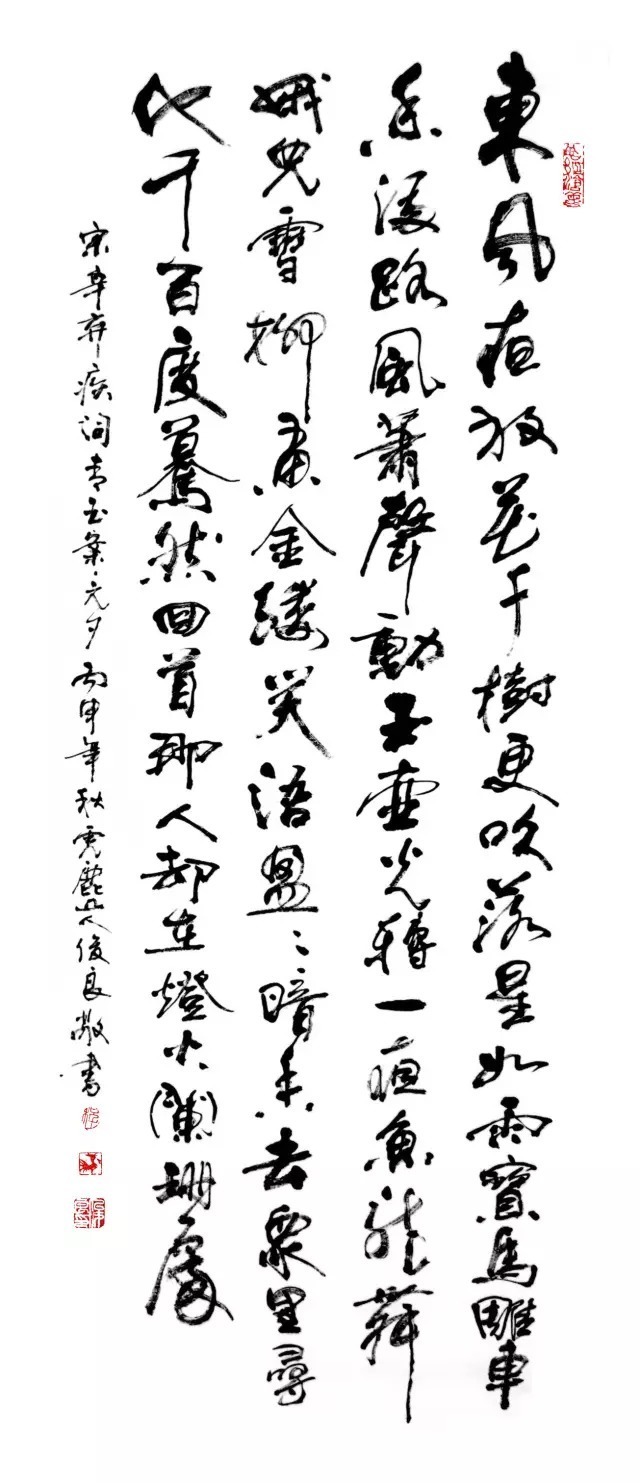 東風夜放花千樹更吹落星如雨寶馬雕車
香滿路鳳簫聲動玉壺光轉一夜魚龍舞
蛾兒雪柳黃金縷笑語盈〻暗香去衆里尋
他千百度驀然回首那人却在燈火闌珊處
宋辛弃疾詞青玉案·元夕丙申年秋俊良敬書